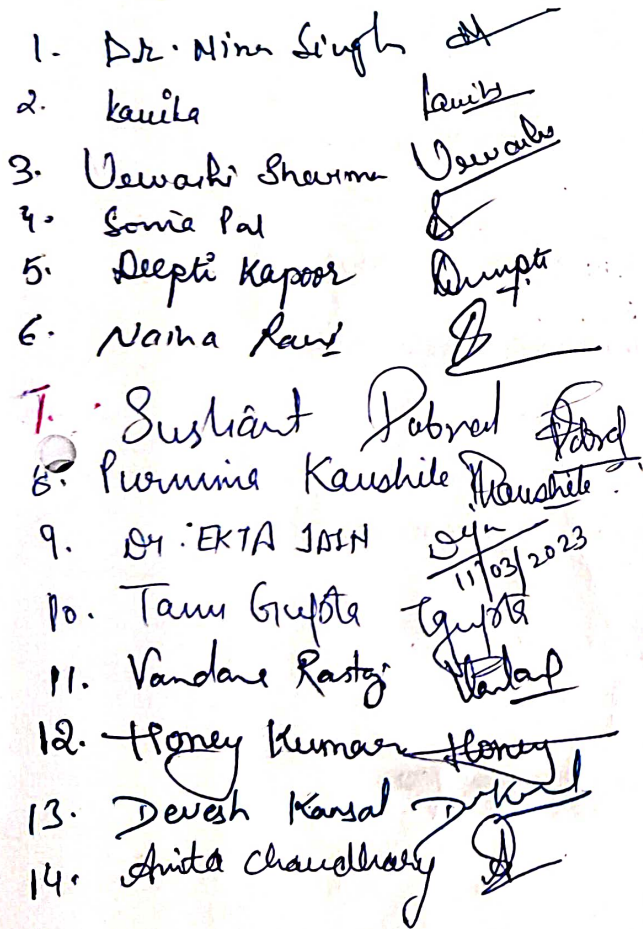 1. Dr. Mina Singh
2. Kanika Kanika
3. Urwashi Sharma Urwashi
4. Sonia Pal
5. Deepti Kapoor
6. Naina Rani
7. Sushant Dabral Dabral
8. Purnima Kaushik PKaushik
9. Dr. EKTA JAIN
11/03/2023
10. Tanu Gupta TGupta
11. Vandana Rastogi
12. Honey Kumar Honey
13. Devesh Kansal
14. Anita Chaudhary